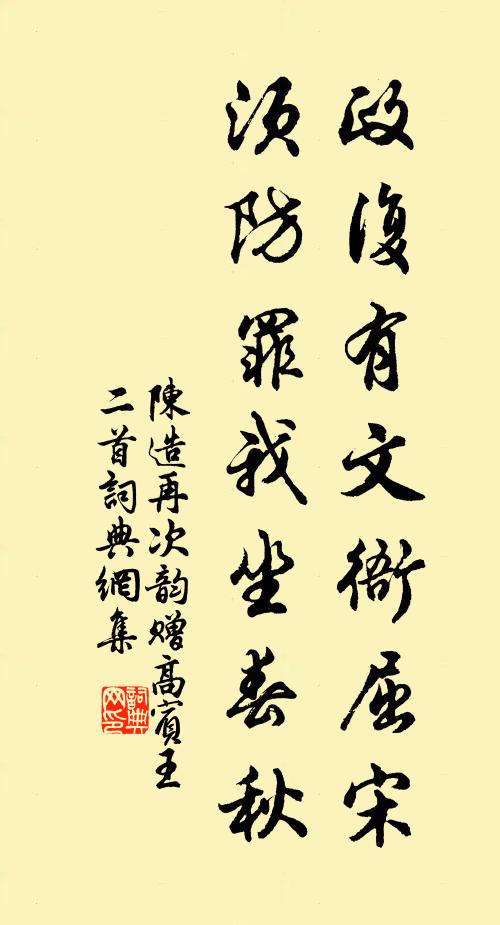 政復有文衙屈宋
須防罪我坐春秋
陳造再次韵贈高賓王
二首詞典網集
詞典网印